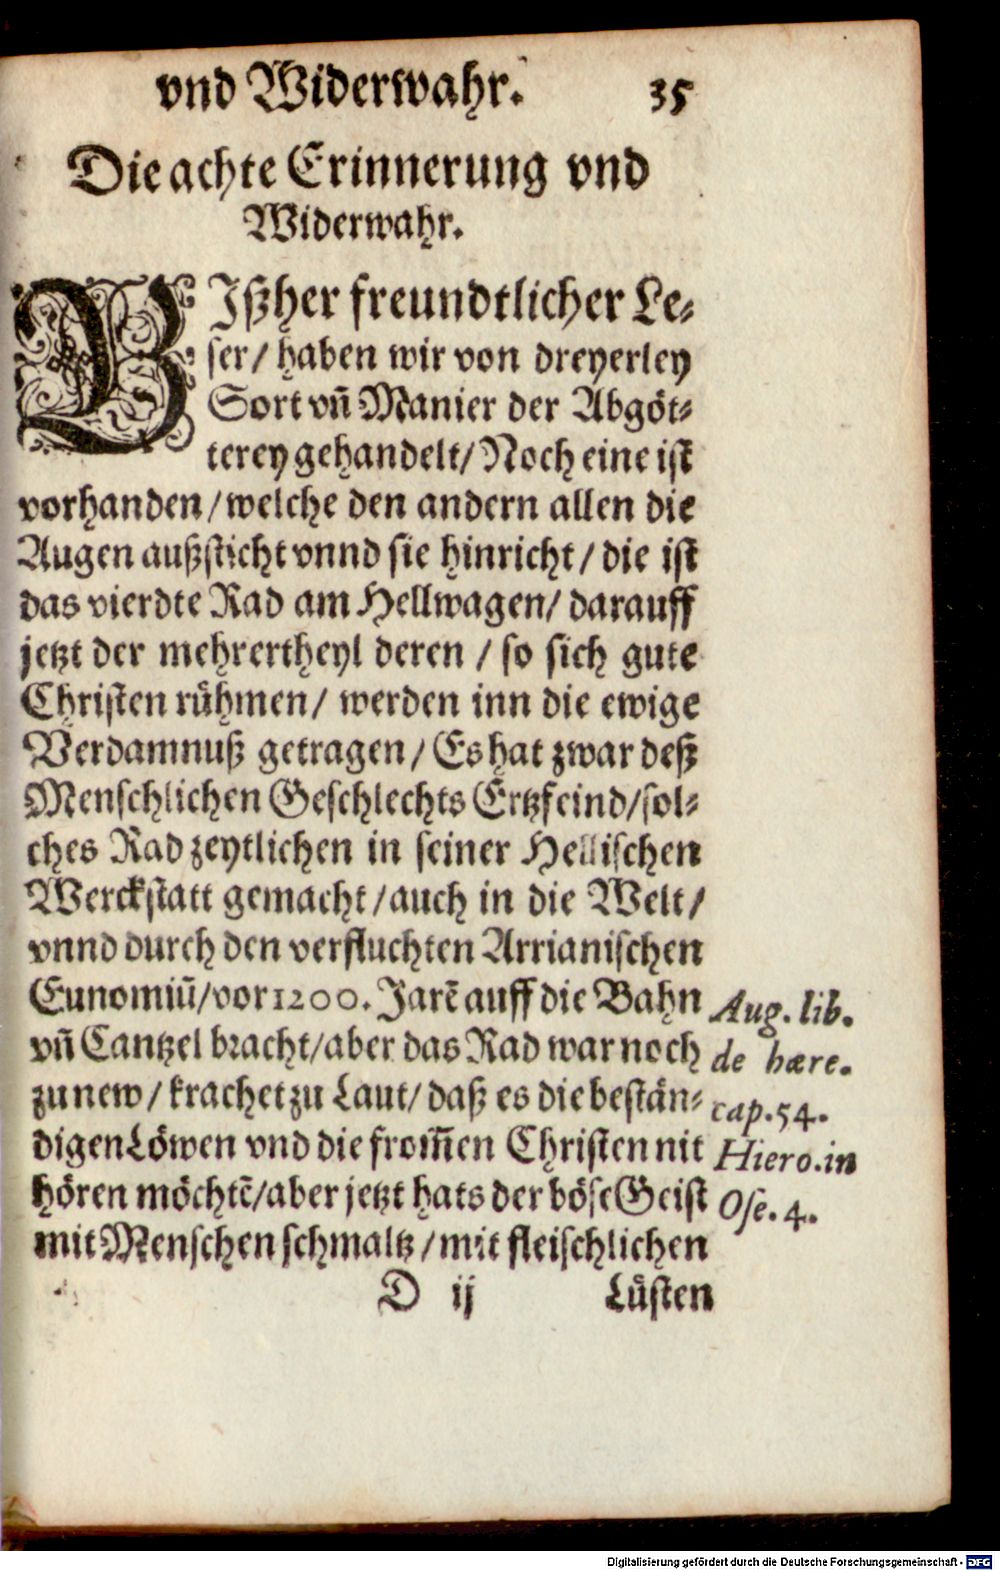 vnd Widerwahr. 35
Die achte Erinnerung vnd
Widerwahr.
BIßher freundtlicher Le-
ser/ haben wir von dreyerley
Sort vñ Manier der Abgöt-
terey gehandelt/ Noch eine ist
vorhanden/ welche den andern allen die
Augen außsticht vnnd sie hinricht/ die ist
das vierdte Rad am Hellwagen/ darauff
jetzt der mehrertheyl deren / so sich gute
Christen rühmen/ werden inn die ewige
Verdamnuß getragen/ Es hat zwar deß
Menschlichen Geschlechts Ertzfeind/ sol-
ches Rad zeytlichen in seiner Hellischen
Werckstatt gemacht/ auch in die Welt/
vnnd durch den verfluchten Arrianischen
Eunomiũ/ vor 1200. Jarẽ auff die Bahn
vñ Cantzel bracht/ aber das Rad war noch
zu new/ krachet zu Laut/ daß es die bestän-
digen Löwen vnd die from̃en Christen nit
hören möchtẽ/ aber jetzt hats der böse Geist
mit Menschen schmaltz/ mit fleischlichen
Aug. lib.
de hære.
cap. 54.
Hiero. in
Ose. 4.
D ij Lüsten
Digitalisierung gefördert durch die Deutsche Forschungsgemeinschaft - DFG